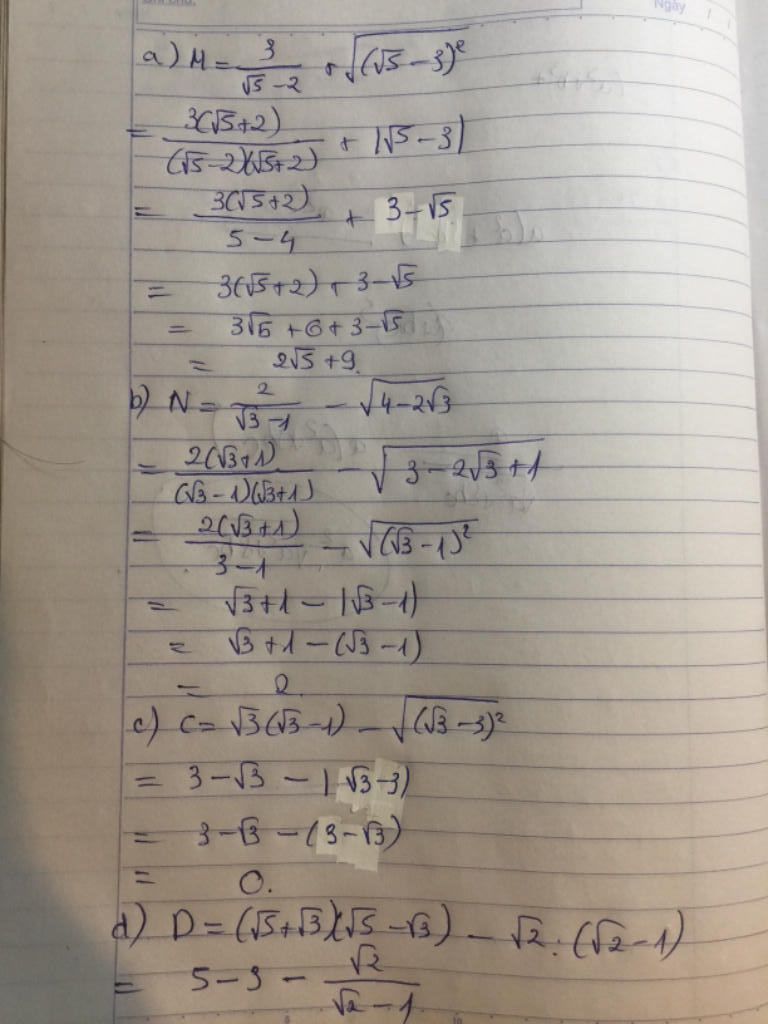 Ghi chú:
Ngày / /
a) M = 3/(√5 - 2) + √((√5 - 3)²)
= 3(√5+2)/((√5-2)(√5+2)) + |√5 - 3|
= 3(√5+2)/(5-4) + 3-√5
= 3(√5+2) + 3-√5
= 3√5 + 6 + 3-√5
= 2√5 + 9.
b) N = 2/(√3 - 1) - √(4-2√3)
= 2(√3+1)/((√3-1)(√3+1)) - √(3-2√3+1)
= 2(√3+1)/(3-1) - √((√3-1)²)
= √3+1 - |√3-1)
= √3+1 - (√3-1)
= 2.
c) C = √3(√3-1) - √((√3-3)²)
= 3-√3 - |√3-3)
= 3-√3 - (3-√3)
= 0.
d) D = (√5+√3)(√5-√3) - √2 : (√2-1)
= 5-3 - √2/(√2-1)